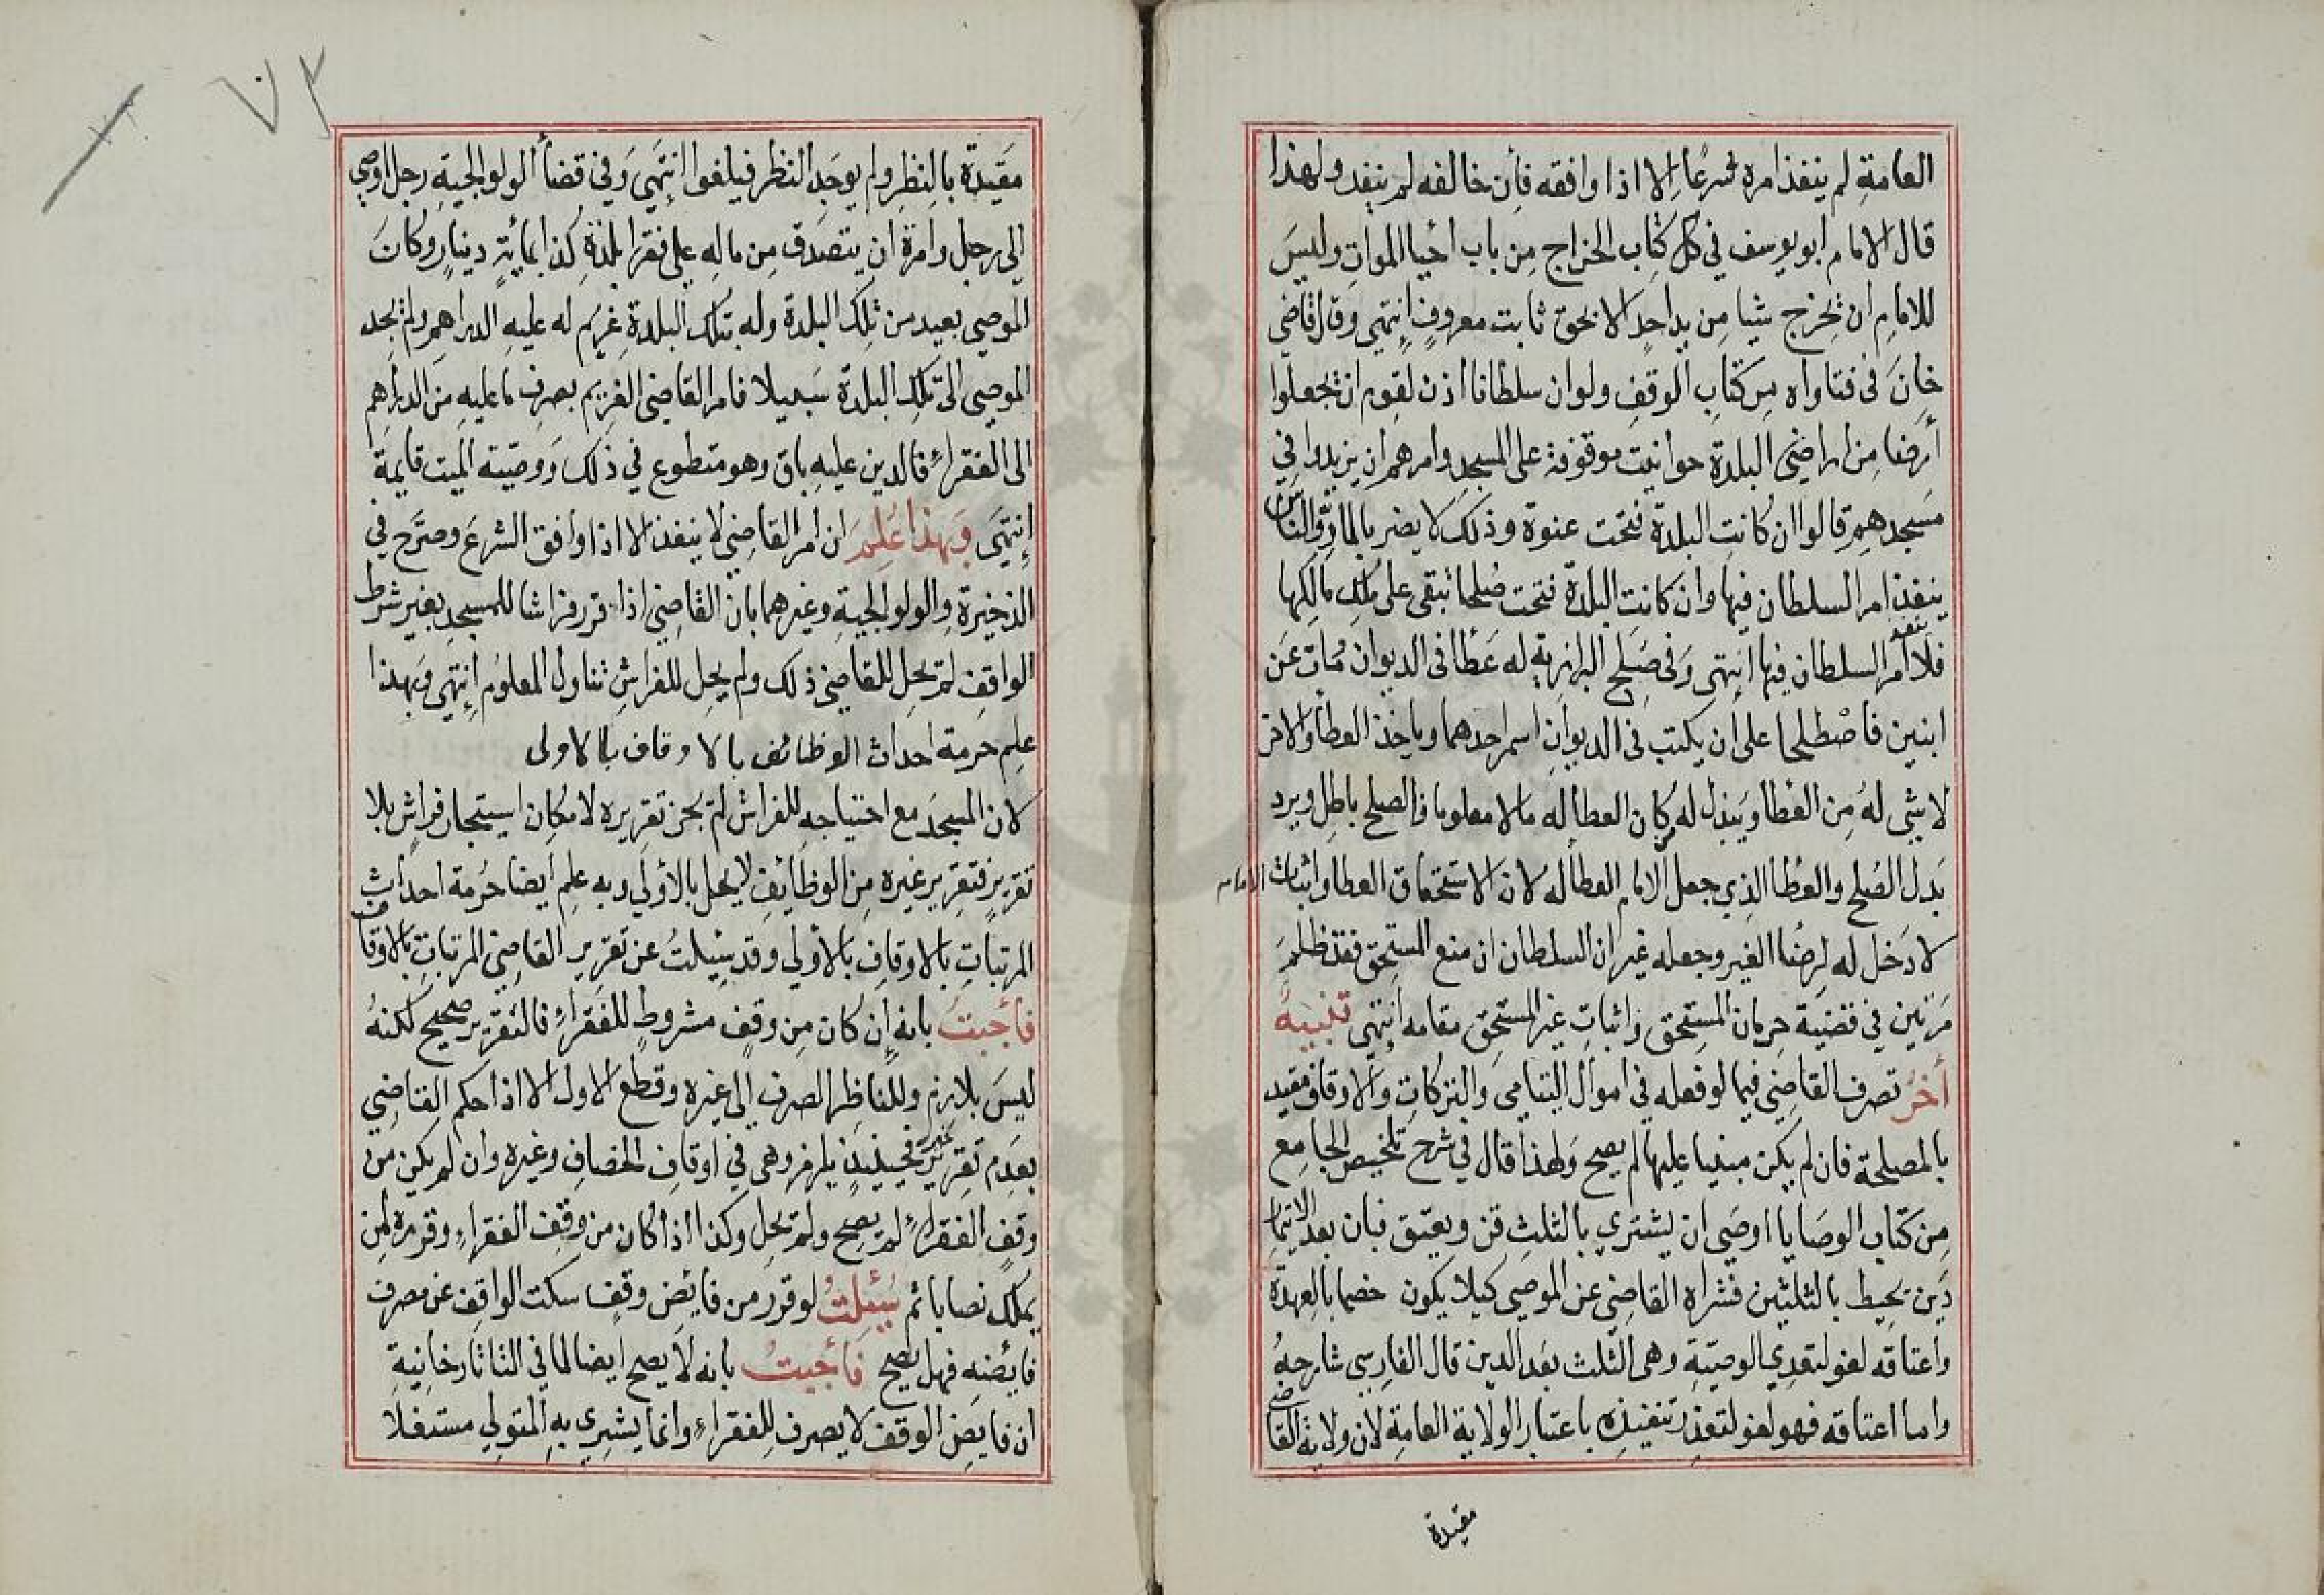 العامة لم ينفذ امره شرعا الا اذا وافقه فان خالفه لم ينفذ ولهذا
قال الامام ابو يوسف في كل كتاب الخراج من باب احيا الموات وليس
للامام ان يخرج شيا من يد احد الا بحق ثابت معروف انتهى وقال قاضي
خان في فتاواه من كتاب الوقف ولو ان سلطانا اذن لقوم ان يجعلوا
أرضا من اراضي البلدة حوانيت موقوفة على المسجد وامرهم ان يزيدوا في
مسجدهم قالوا ان كانت البلدة فتحت عنوة وذلك لا يضر بالمار والناس
ينفذ امر السلطان فيها وان كانت البلدة فتحت صلحا تبقى على ملك مالكها
فلا ينفذ امر السلطان فيها انتهى وفي صلح البزازية له عطا في الديوان مات عن
ابنين فاصطلحا على ان يكتب في الديوان اسم احدهما وياخذ العطا والاخر
لا شي له من العطا ويبذل له من كان العطا له مالا معلوما فالصلح باطل ويرد
بدل الصلح والعطا الذي جعل الامام العطا له لان الاستحقاق العطا واثبات الامام
لا دخل له لرضا الغير وجعله غير ان السلطان ان منع المستحق فقد ظلم
مرتين في قضية حرمان المستحق واثبات غير المستحق مقامه انتهى تنبيه
أخر تصرف القاضي فيما لو فعله في اموال اليتامى والتركات والاوقاف مقيد
بالمصلحة فان لم يكن مبنيا عليها لم يصح ولهذا قال في شرح تلخيص الجامع
من كتاب الوصايا اوصى ان يشتري بالثلث قن ويعتق فبان بعد الايتمار
دين يحيط بالثلثين فشراه القاضي عن الموصي كيلا يكون خصما بالعهدة
واعتاقه لغو لتعدي الوصية وهى الثلث بعد الدين قال الفارسي شارحه
واما اعتاقه فهو لغو لتعذر تنفيذه باعتبار الولاية العامة لان ولاية القاضي
مقيدة
٧٣
مقيدة بالنظر ولم يوجد النظر فيلغوا انتهى وفي قضأ الولوالجية رجل اوصى
الى رجل وامره ان يتصدق من ماله على فقرا بلدة كذا بمائة دينار وكان
الموصي بعيد من تلك البلدة وله بتلك البلدة غريم له عليه الدراهم ولم يجد
الموصي الى تلك البلدة سبيلا فامر القاضي الغريم بصرف ما عليه من الدراهم
الى الفقراء فالدين عليه باق وهو متطوع في ذلك ووصيته الميت قايمة
انتهى وبهذا علم ان امر القاضي لا ينفذ الا اذا وافق الشرع وصرح في
الذخيرة والولوالجية وغيرهما بان القاضي اذا قرر فراشا للمسجد بغير شرط
الواقف لم يحل للقاضي ذلك ولم يحل للفراش تناول المعلوم انتهى وبهذا
علم حرمة احداث الوظائف بالاوقاف بالاولى
لان المسجد مع احتياجه للفراش لم يجز تقريره لامكان استيجار فراش بلا
تقرير فتقرير غيره من الوظايف لا يحل بالاولى وبه علم ايضا حرمة احداث
المرتبات بالاوقاف بالاولى وقد سيلت عن تقرير القاضي المرتبات بالاوقاف
فأجبت بانه إن كان من وقف مشروط للفقراء فالتقرير صحيح لكنه
ليس بلازم وللناظر الصرف الى غيره وقطع الاول الا اذا حكم القاضي
بعدم تقرير غيره فحينيذ يلزم وهى في اوقاف الخصاف وغيره وان لم يكن من
وقف الفقراء لم يصح ولم يحل وكذا اذا كان من وقف الفقراء وقرره لمن
يملك نصابا ثم سئلت لو قرر من فايض وقف سكت الواقف عن مصرف
فايضه فهل يصح فأجبت بانه لا يصح ايضا لما في التاتارخانية
ان فايض الوقف لا يصرف للفقراء وانما يشري به المتولي مستغلا